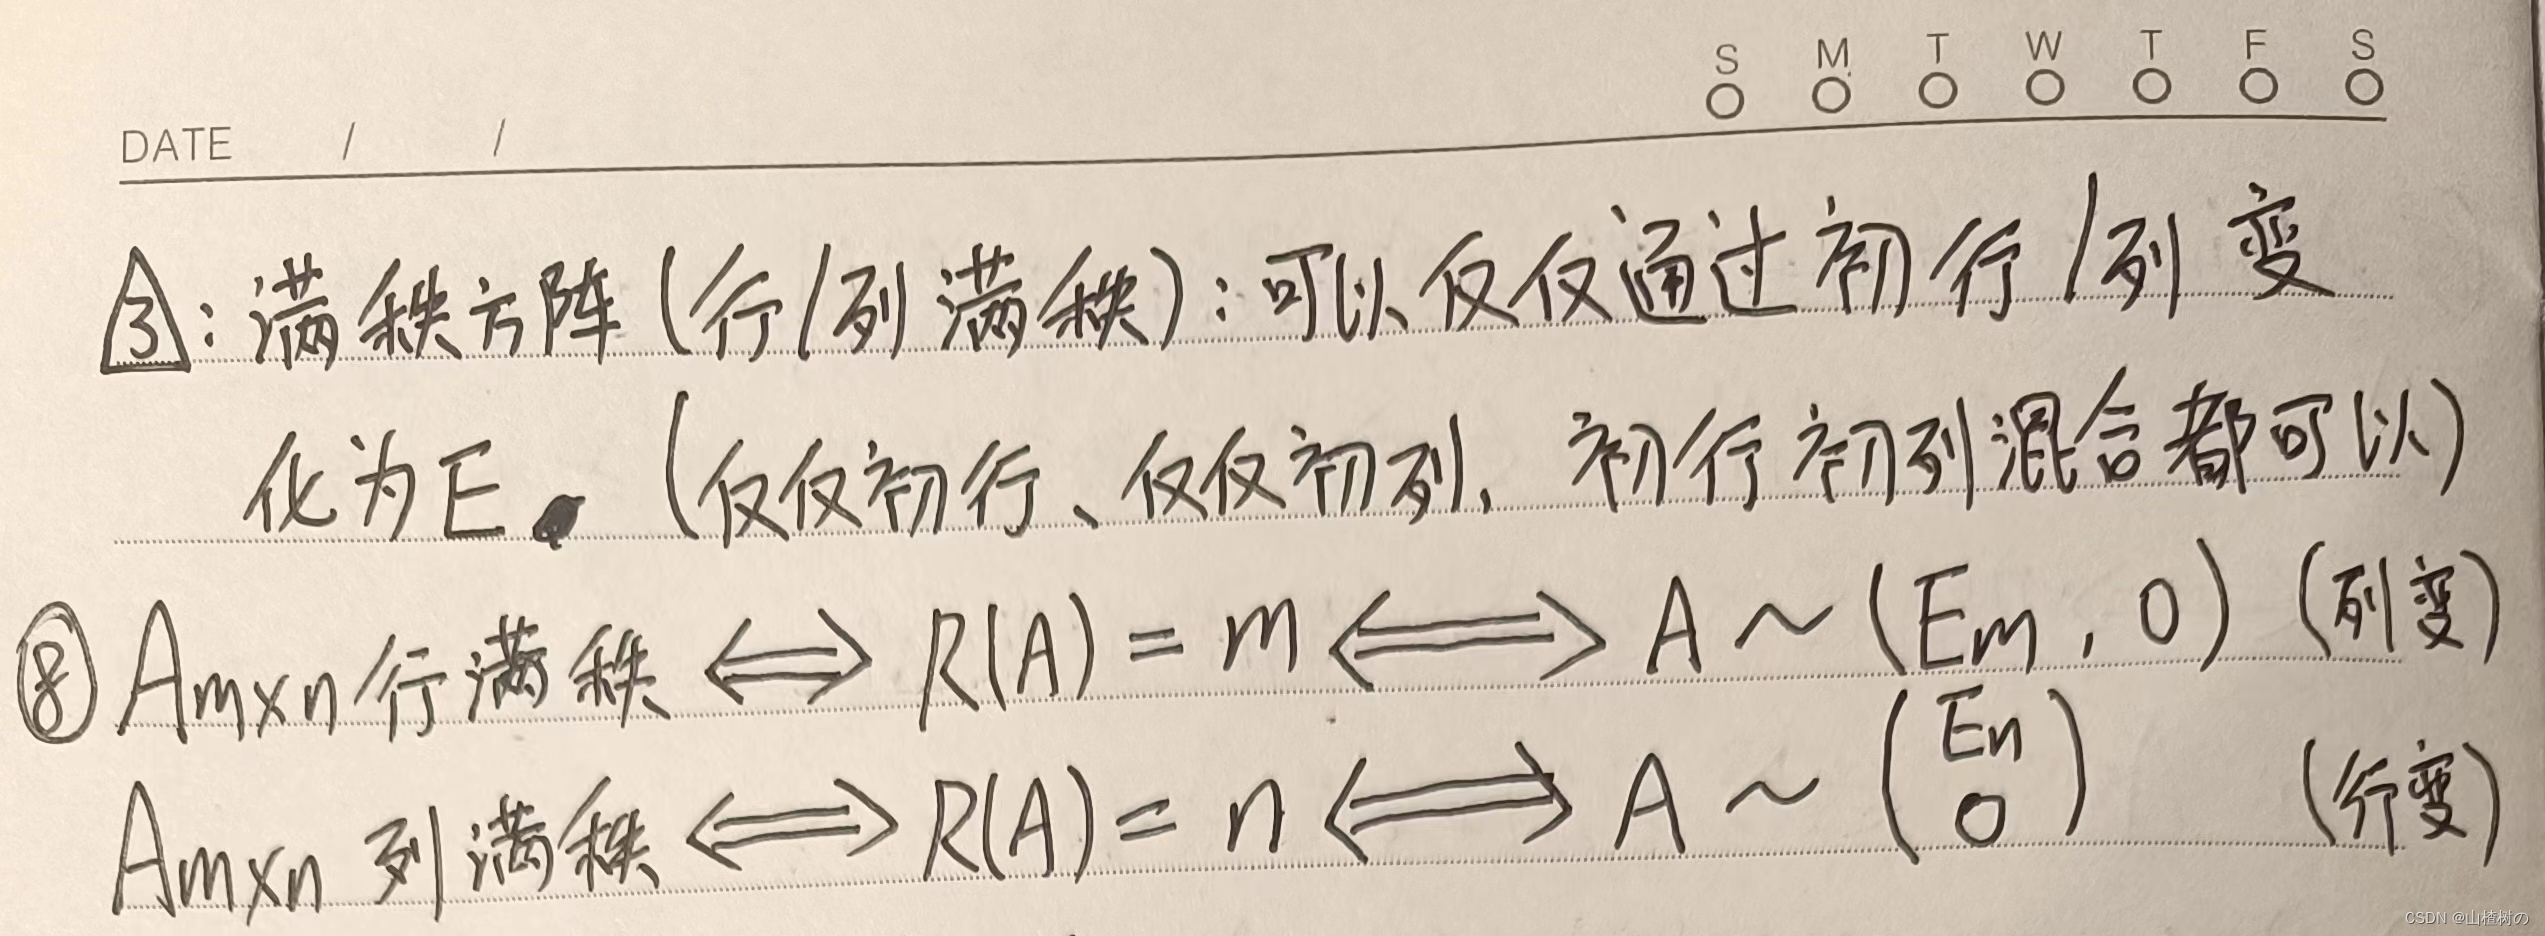 S M T W T F S
DATE / /
3：满秩方阵(行/列满秩)：可以仅仅通过初行/列变
化为E。(仅仅初行、仅仅初列、初行初列混合都可以)
⑧ Am×n行满秩 ⟺ R(A) = m ⟺ A ~ (Em , 0) (列变)
Am×n 列满秩 ⟺ R(A) = n ⟺ A ~ (En 0) (行变)
CSDN @山楂树の